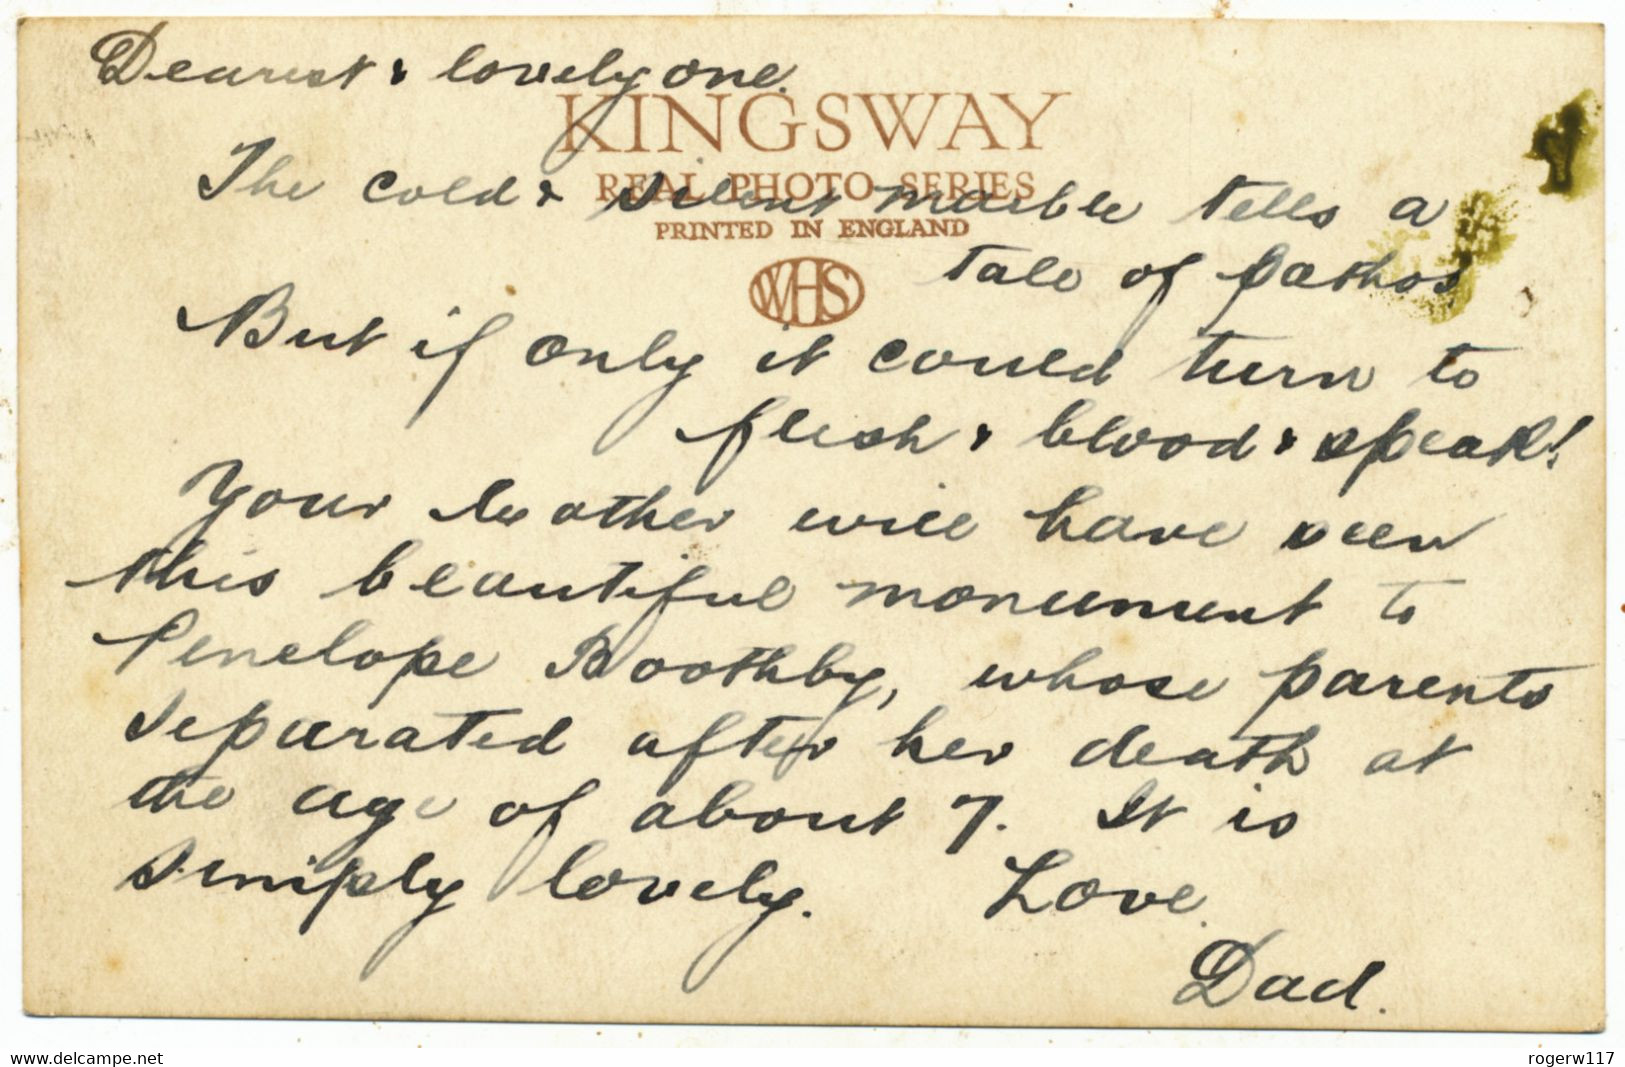 Dearest & lovely one.
KINGSWAY
REAL PHOTO SERIES
PRINTED IN ENGLAND
WHS
The cold & silent marble tells a
tale of pathos.
But if only it could turn to
flesh & blood & speak!
Your mother will have seen
this beautiful monument to
Penelope Boothby, whose parents
separated after her death at
the age of about 7. It is
simply lovely. Love.
Dad.
www.delcampe.net
rogerw117